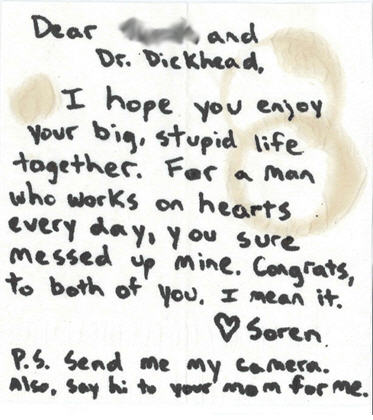 Dear and
Dr. Dickhead,
I hope you enjoy
your big, stupid life
together. For a man
who works on hearts
every day, you sure
messed up mine. Congrats,
to both of you. I mean it.
♡ Soren
P.S. Send me my camera.
Also, say hi to your mom for me.